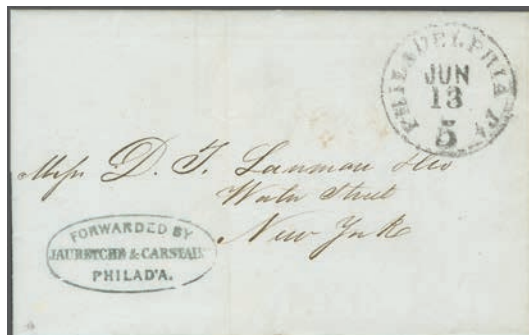 PHILADELPHIA Pa
JUN
13
5
Messrs D. T. Lanman & Co
Water Street
New York
FORWARDED BY
JAURETCHE & CARSTAIRS
PHILAD'A.